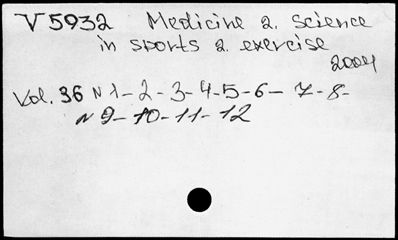 V5932 Medicine a. science
in sports a. exercise
2004
Vol. 36 N 1-2-3-4-5-6-7-8-
N 9-10-11-12